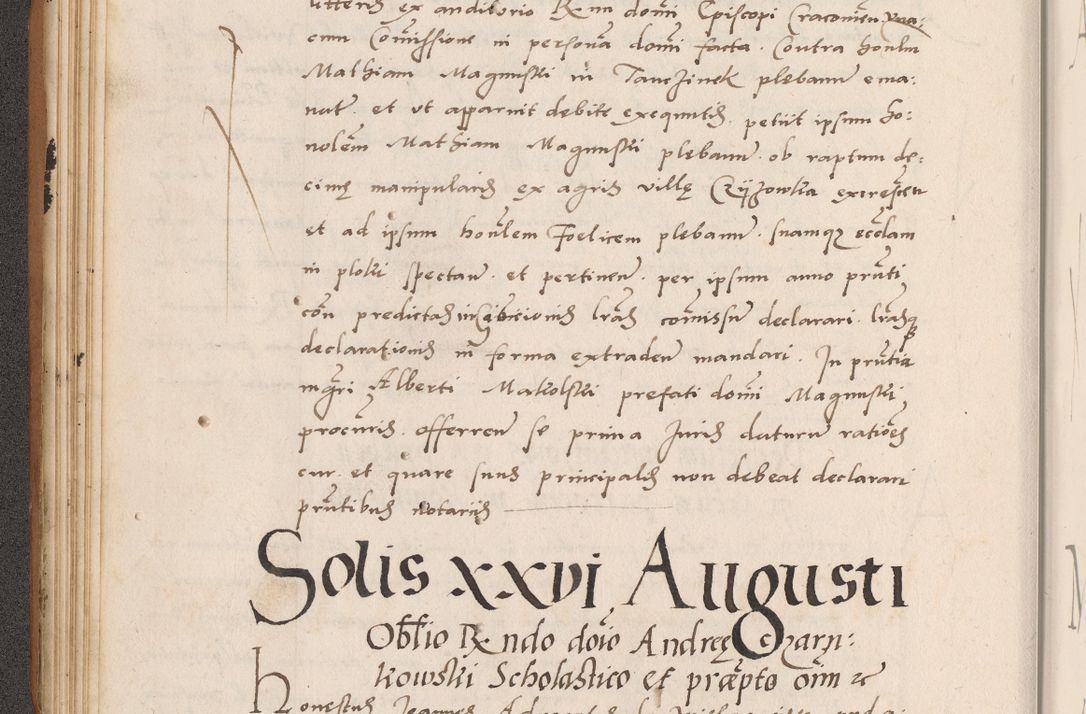 litteris ex auditorio Rmi domi Episcopi Cracovien
enm Comissione in persona domi facta. Contra honlm
Mathiam Magnuski in Tanczinek plebanu ema:
nat. et ut apparuit debite exequutis. petiit ipsum ho:
nolem Mathiam Magnuski plebanu. ob raptum de:
cimę manipularis ex agris villę Czyżowka excrescen
et ad ipsum honlem Foelicem plebanu. suamqz eccłam
in ploki spectan. et pertinen. per ipsum anno pruti
con predictas lras comissu declarari. lrasq
declarationis in forma extraden mandari. In prutia
mgri Alberti Makolski prefati domi Magnuski
procuris. offerren se prima Juris daturu ratioes
cur. et quare suus principalis non debeat declarari
prutibus notariis
Solis xxvj Augusti
Obllio Rndo doio Andreę Czarn:
kowski Scholastico et præpto om zc
Honestus Joannes